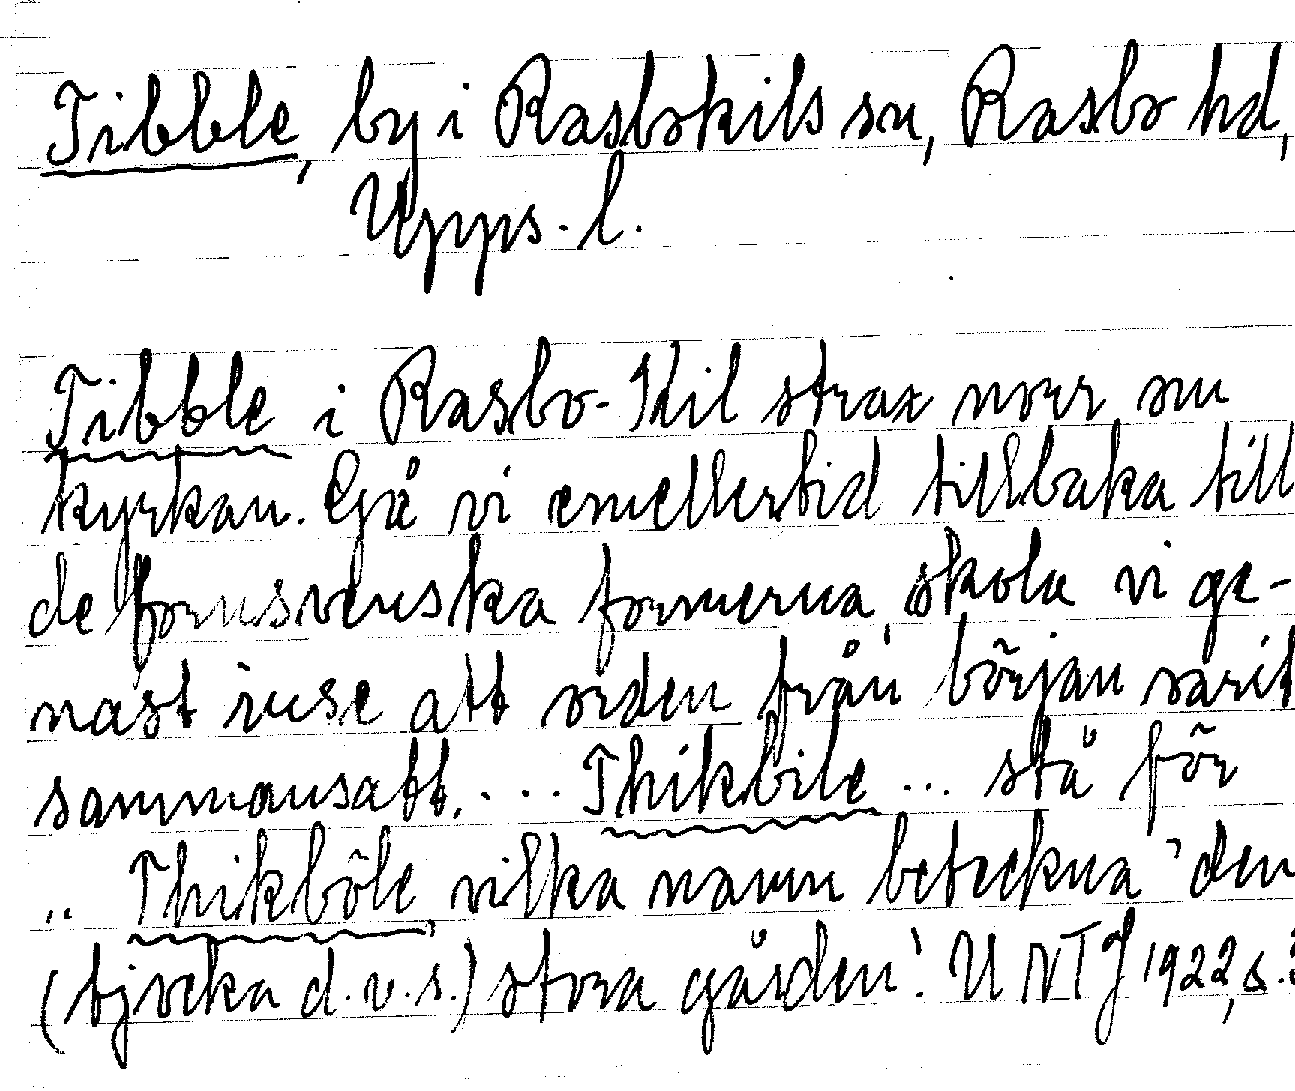 Tibble, by i Rasbokils sn, Rasbo hd,
Upps. l.
Tibble i Rasbo-Kil strax norr om
kyrkan. Gå vi emellertid tillbaka till
de fornsvenska formerna, skola vi ge-
nast inse att orden från början varit
sammansatt. ... Thikbile ... stå för
.. Thikböle, vilka namn beteckna 'den
(tjocka d.v.s.) stora gården'. UNTJ 1922, s.